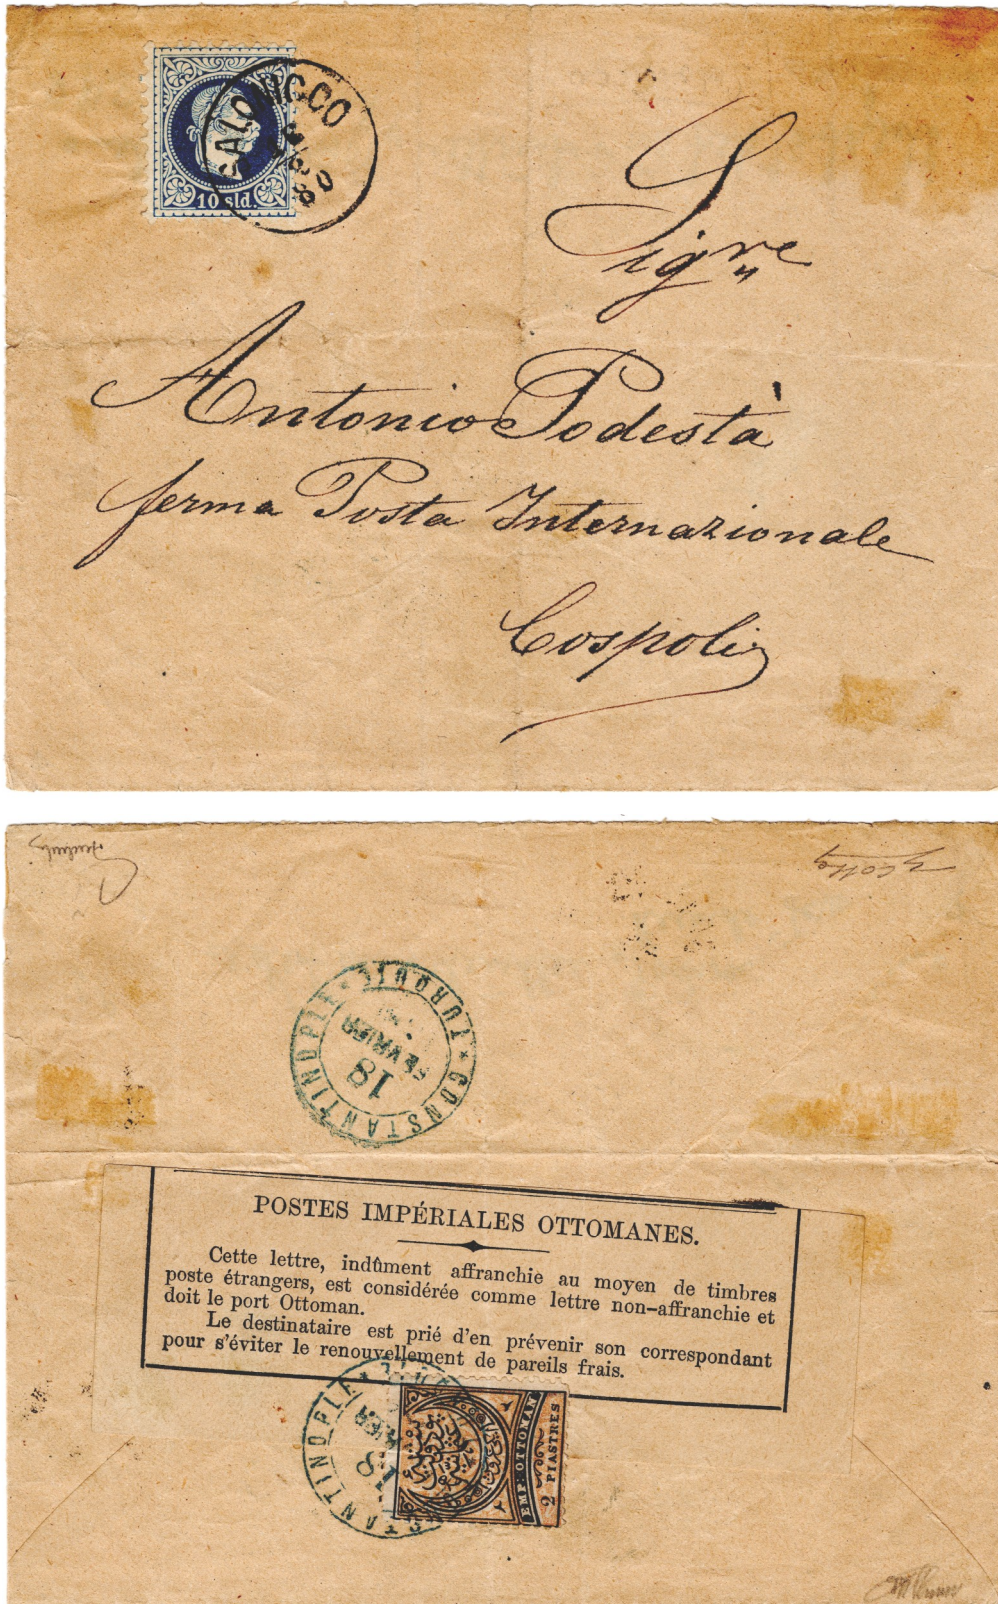 SALONICCO
10 sld.
Sigre
Antonio Podestà
ferma Posta Internazionale
Cospoli
TURQUIE * CONSTANTINOPLE *
18
FEVRIER
POSTES IMPÉRIALES OTTOMANES.
Cette lettre, indûment affranchie au moyen de timbres
poste étrangers, est considérée comme lettre non-affranchie et
doit le port Ottoman.
Le destinataire est prié d'en prévenir son correspondant
pour s'éviter le renouvellement de pareils frais.
18
EMP: OTTOMAN
2 PIASTRES